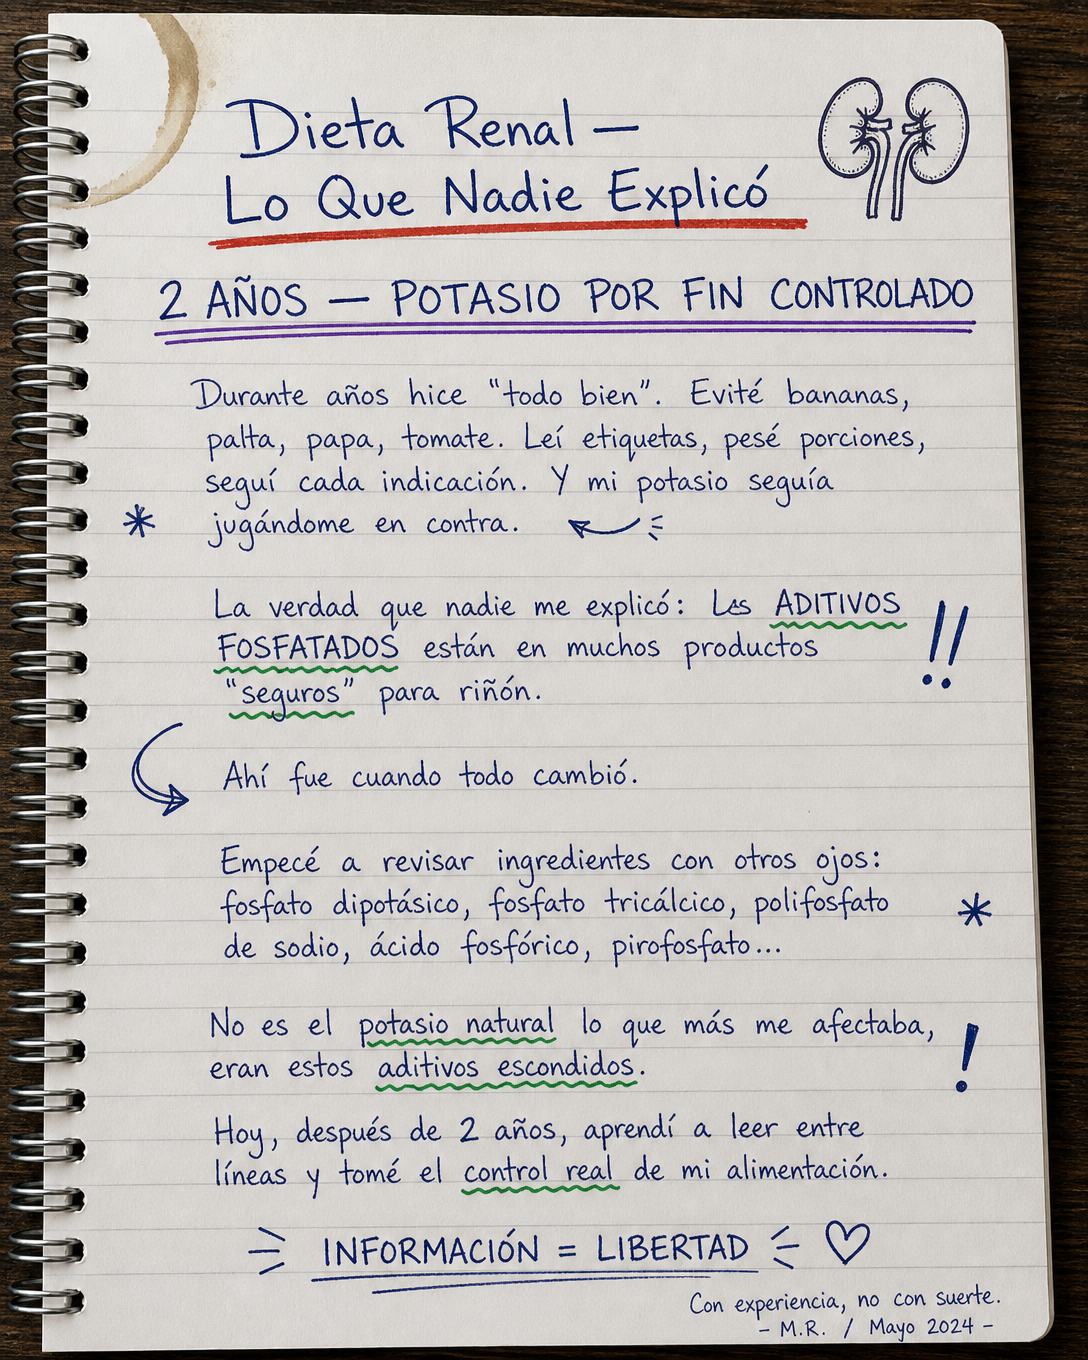 Dieta Renal —
Lo Que Nadie Explicó
2 AÑOS — POTASIO POR FIN CONTROLADO
Durante años hice "todo bien". Evité bananas,
palta, papa, tomate. Leí etiquetas, pesé porciones,
seguí cada indicación. Y mi potasio seguía
* jugándome en contra.
La verdad que nadie me explicó: Los ADITIVOS
FOSFATADOS están en muchos productos !!
"seguros" para riñón.
Ahí fue cuando todo cambió.
Empecé a revisar ingredientes con otros ojos:
fosfato dipotásico, fosfato tricálcico, polifosfato *
de sodio, ácido fosfórico, pirofosfato...
No es el potasio natural lo que más me afectaba,
eran estos aditivos escondidos. !
Hoy, después de 2 años, aprendí a leer entre
líneas y tomé el control real de mi alimentación.
INFORMACIÓN = LIBERTAD ♡
Con experiencia, no con suerte.
- M.R. / Mayo 2024 -